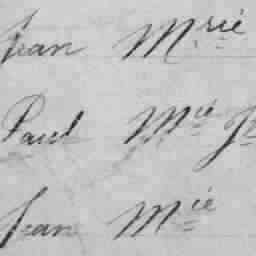 Jean M.rie
Paul Mie
Jean Mie